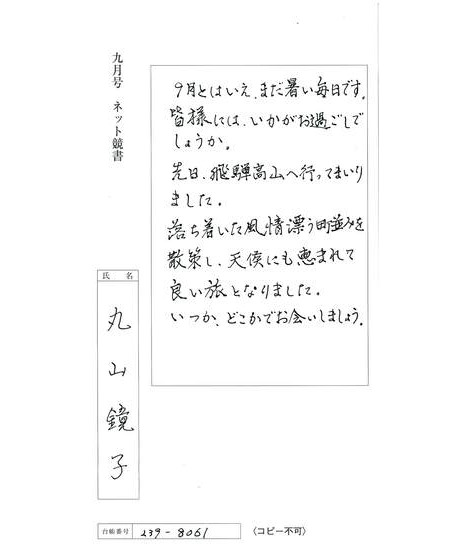 九月号 ネット競書
9月とはいえ、まだ暑い毎日です。
皆様には、いかがお過ごしで
しょうか。
先日、飛騨高山へ行ってまいり
ました。
落ち着いた風情漂う町並みを
散策し、天候にも恵まれて
良い旅となりました。
いつか、どこかでお会いしましょう。
氏名
丸山鏡子
台帳番号 239-8061 (コピー不可)